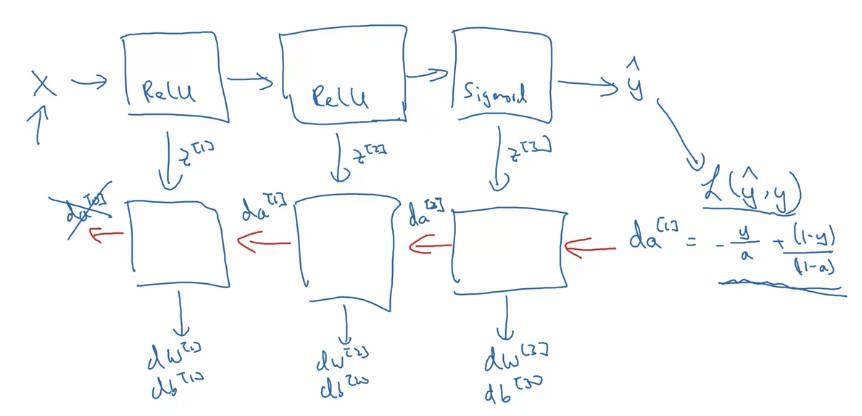 X → ReLU → ReLU → Sigmoid → ŷ
z^[1] z^[2] z^[3]
L(ŷ, y)
da^[0] da^[1] da^[2] da^[1] = - y/a + (1-y)/(1-a)
dw^[1] dw^[2] dw^[3]
db^[1] db^[2] db^[3]